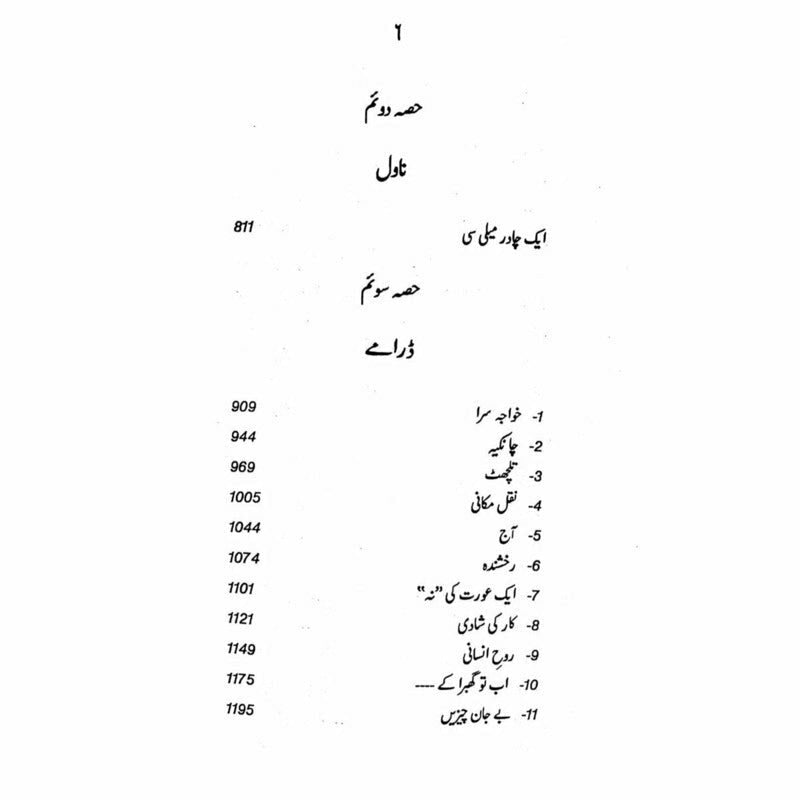 ۶
حصہ دوئم
ناول
ایک چادر میلی سی 811
حصہ سوئم
ڈرامے
1- خواجہ سرا 909
2- چانکیہ 944
3- تلچھٹ 969
4- نقل مکانی 1005
5- آج 1044
6- رخشندہ 1074
7- ایک عورت کی ”نہ“ 1101
8- کار کی شادی 1121
9- روحِ انسانی 1149
10- اب تو گھبرا کے ---- 1175
11- بے جان چیزیں 1195